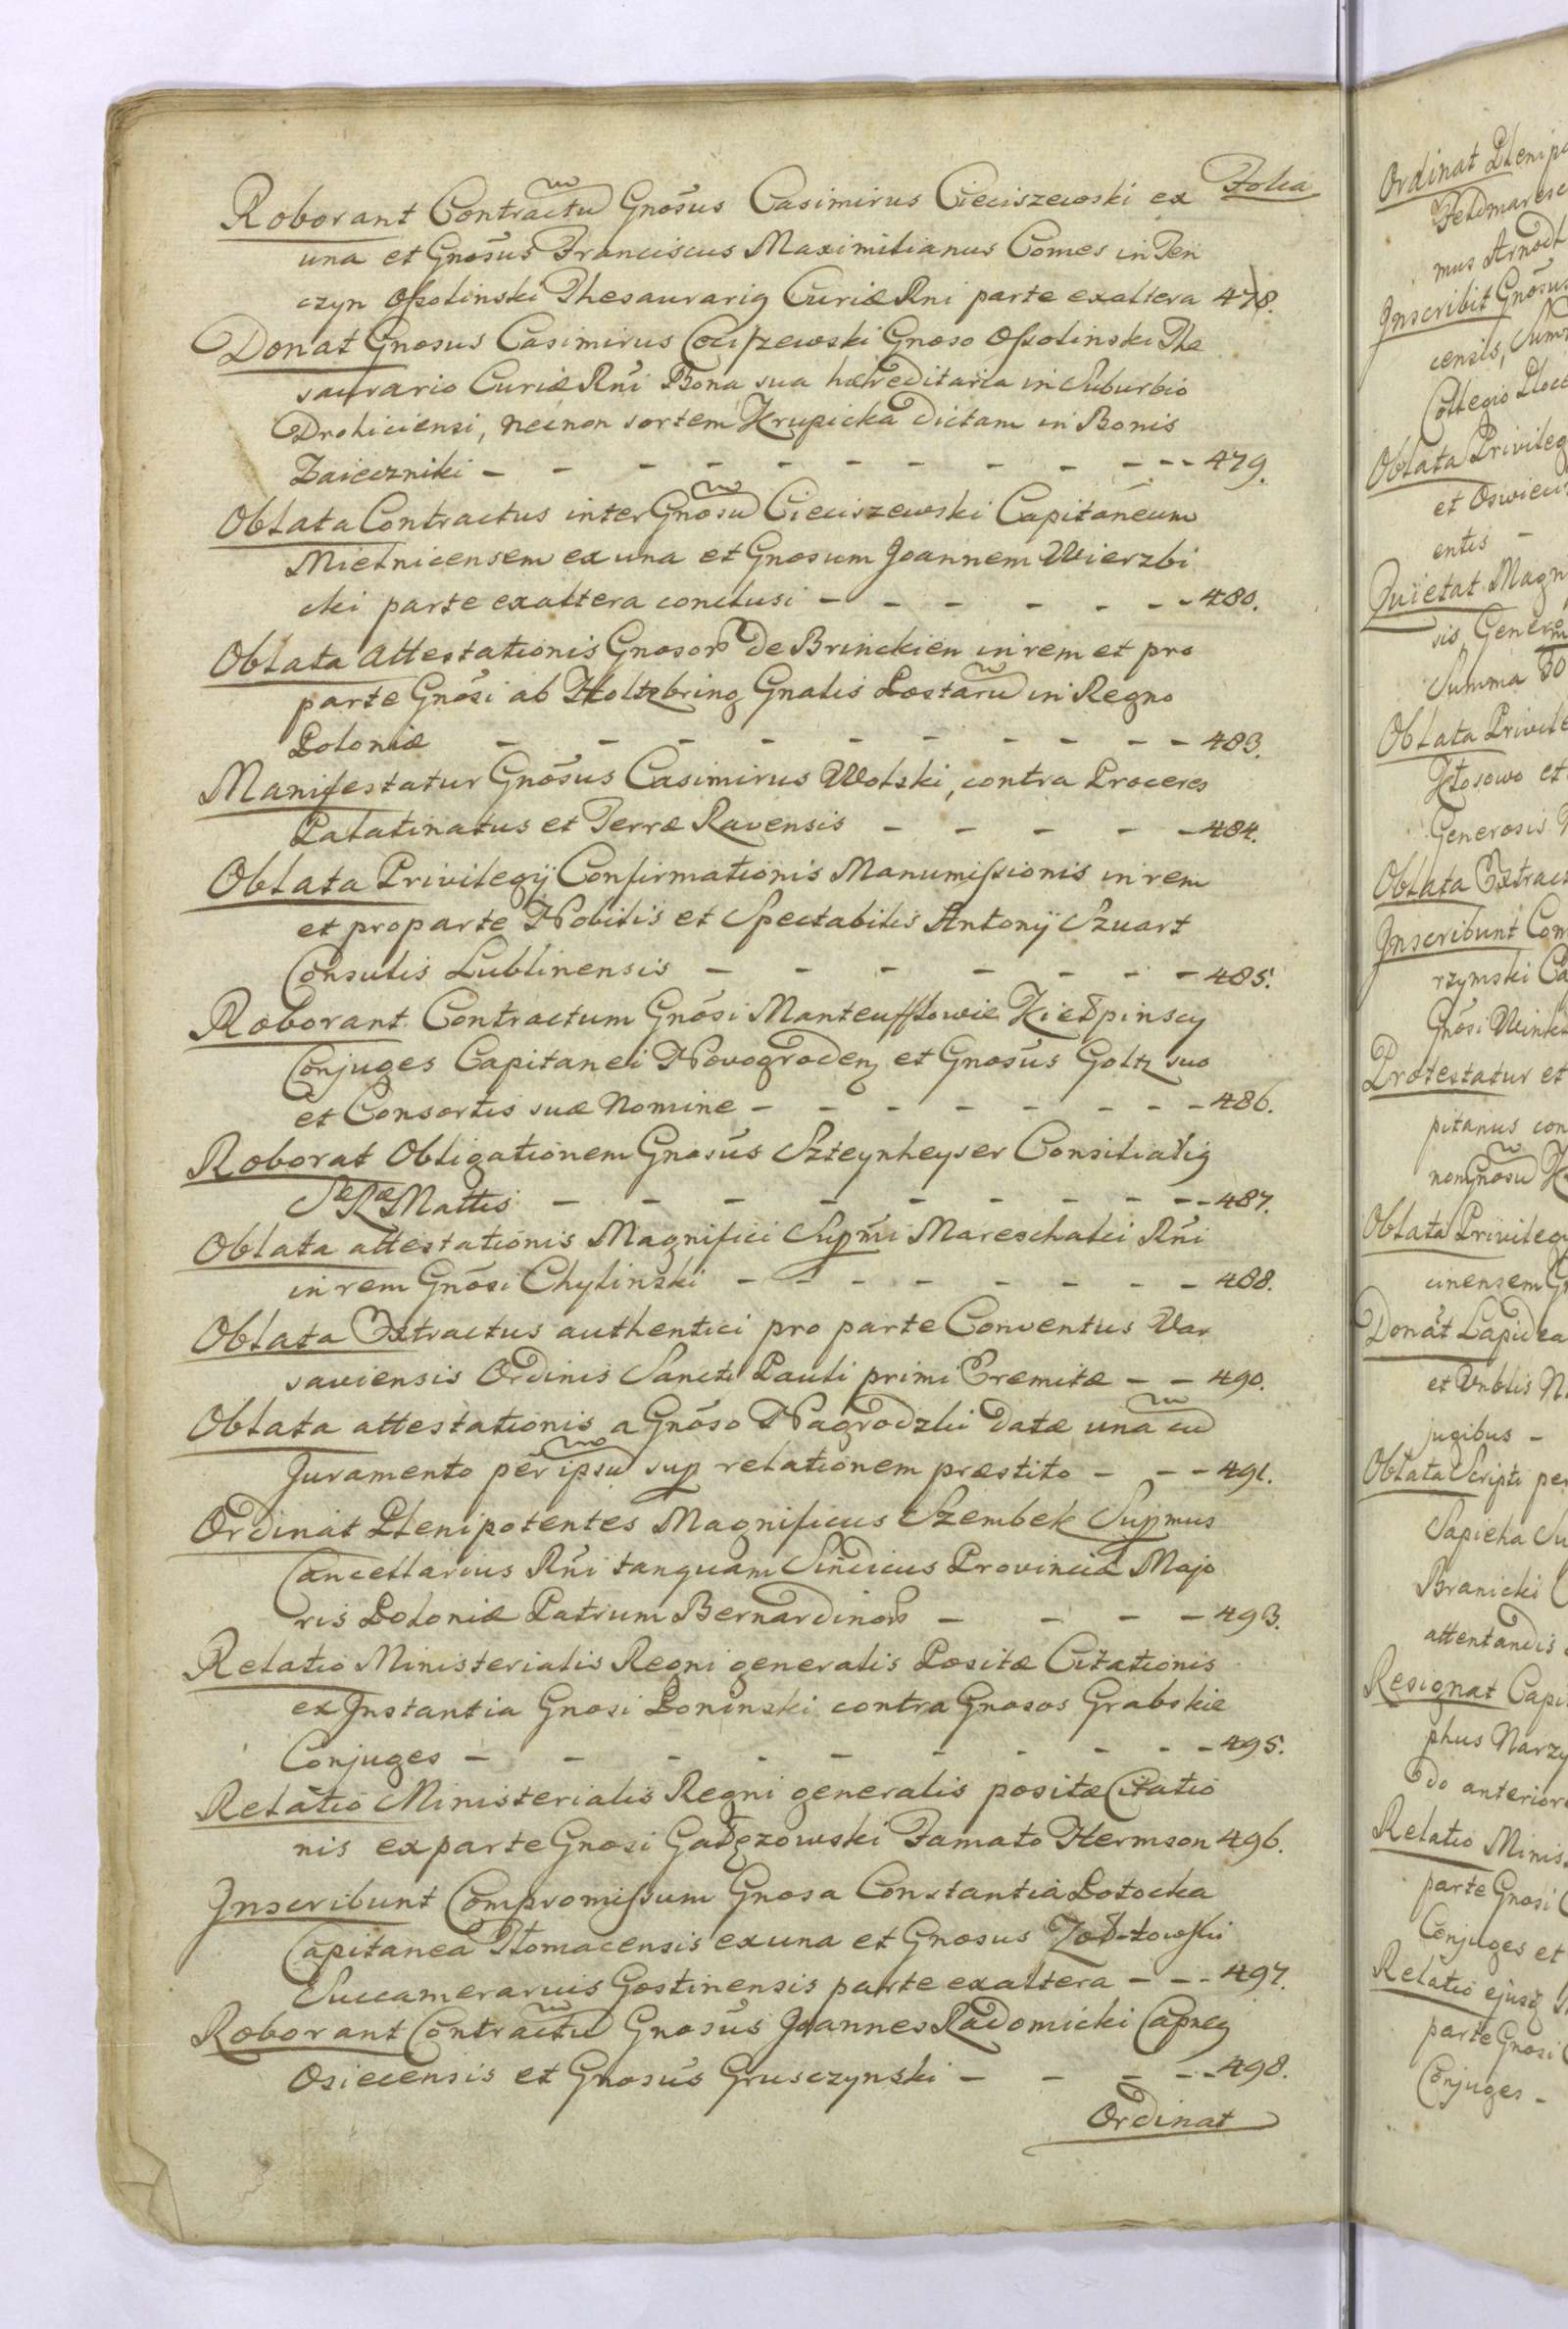 Folia
Roborant Contractū Gnōsus Casimirus Cieciszewski ex
una et Gnōsus Franciscus Maximilianus Comes in Ten
czyn Ossolinski Thesaurariꝯ Curiæ Rni parte exaltera 478.
Donat Gnosus Casimirus Cociszewski Gnoso Ossolinski The
saurario Curiæ Rñi Bona sua hæreditaria in Suburbio
Drohiciensi, necnon sortem Krupicka dictam in Bonis
Zaieczniki - - - - - - - - - - - 479.
Oblata Contractus inter Gnōsū Cieciszewski Capitaneum
Mielnicensem ex una et Gnosum Joannem Wierzbi
cki parte exaltera conclusi - - - - - - - 480.
Oblata attestationis Gnosor de Brinckien in rem et pro
parte Gnōsi ab Holtzbring Gnalis Postarū in Regno
Poloniæ - - - - - - - - - - 483.
Manifestatur Gnōsus Casimirus Wolski, contra Proceres
Palatinatus et Terræ Ravensis - - - - - 484.
Oblata Privilegij Confirmationis Manumissionis in rem
et pro parte Nobilis et Spectabilis Antonij Szuart
Consulis Lublinensis - - - - - - - 485.
Roborant Contractum Gnōsi Manteufflowie Kiełpinscy
Conjuges Capitanei Novogrodenꝯ et Gnosūs Goltz suo
et Consortis suæ Nomine - - - - - - - - 486.
Roborat Obligationem Gnosūs Szteynheyser Consiliariꝯ
Sæ Ræ Mattis - - - - - - - - - - 487.
Oblata attestationis Magnifici Supm̄i Mareschalci Rñi
in rem Gnōsi Chylinski - - - - - - - - 488.
Oblata Extractus authentici pro parte Conventus Var
saviensis Ordinis Sancti Pauli primi Eremitæ - - 490.
Oblata attestationis a Gnōso Nagrodzki datæ una cū
Juramento per ipsū sup relationem præstito - - - 491.
Ordinat Plenipotentes Magnificus Szembek Supmus
Cancellarius Rñi tanquam Sindicus Provinciæ Majo
ris Poloniæ Patrum Bernardinor - - - - 493.
Relatio Ministerialis Regni generalis Positæ Citationis
ex Instantia Gnosi Poninski contra Gnosos Grabskie
Conjuges - - - - - - - - - - 495.
Relatio Ministerialis Regni generalis positæ Citatio
nis ex parte Gnosi Gałęzowski Famato Hermson 496.
Inscribunt Compromissum Gnosa Constantia Potocka
Capitanea Tłomacensis ex una et Gnosus
Succamerarius Gostinensis parte exaltera - - - 497.
Roborant Contractū Gnosūs Joannes Radomicki Capneꝯ
Osiecensis et Gnosūs Grusczynski - - - - - 498.
Ordinat
Ordinat Plenipo
mus Arnodt
Inscribit Gnōsus
censis, Sum
Collegio Ploce
Oblata Privileg
et Oswieci
entis -
Quietat Magn
sis, Genere
Summa
Oblata Privile
Kłosowo et
Generosis
Oblata Extrac
Inscribunt Com
rzymski Ca
Gnōsi
Protestatur et
pitanus con
non Gnosū
Oblata Privileg
cinensem
Donat Lapidea
et Vnblis
jugibus -
Oblata Scripti per
Sapieha Su
Branicki
attentandis
Resignat Capi
phus Narzy
do anterior
Relatio Minis
parte Gnosi
Conjuges et
Relatio ejusꝗ
parte Gnosi
Conjuges -